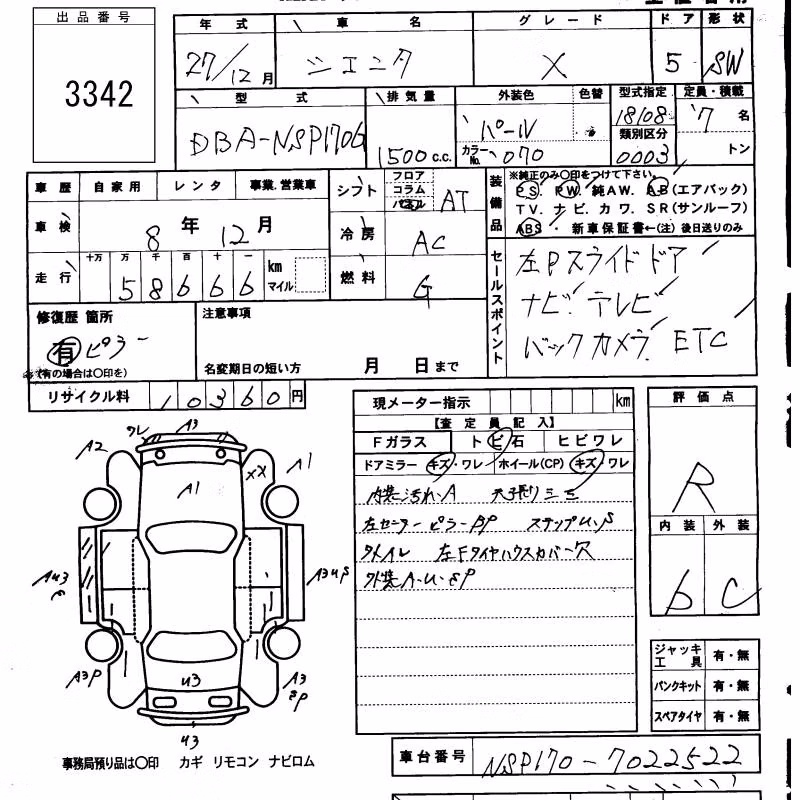 出品番号
3342
年式 車名 グレード ドア 形状
27/12月 シエンタ X 5 SW
型式 排気量 外装色 色替 型式指定 定員・積載
DBA-NSP170G 1500c.c. パール 18108 7名
カラーNo. 070 類別区分 0003 トン
車歴 自家用 レンタ 事業.営業車
シフト フロア コラム AT
車検 8年12月
冷房 AC
走行 十万 万 千 百 十 一 km マイル
58666
燃料 G
装備品
※純正のみ〇印をつけて下さい。
PS. PW. 純AW. AB(エアバック)
TV. ナビ. カワ. SR(サンルーフ)
ABS ・ 新車保証書←(注) 後日送りのみ
セールスポイント
左Pスライドドア
ナビ. テレビ
バックカメラ. ETC
修復歴 箇所
有 ピラー
(有の場合は〇印を)
注意事項
名変期日の短い方 月 日まで
リサイクル料 10360円
現メーター指示 km
【査定員記入】
Fガラス トビ石 ヒビワレ
ドアミラー キズ・ワレ ホイール(CP) キズ ワレ
内装汚れ.A 天張り
左センターピラーBP ステップU.S
左Fタイヤハウスカバー穴
外装A.U.SP
評価点
R
内装 外装
b C
ジャッキ工具 有・無
パンクキット 有・無
スペアタイヤ 有・無
ワレ A3
A2 XX A1
A1
AU3 P A3US
A3P U3 A3 SP
U3
事務局預り品は〇印 カギ リモコン ナビロム
車台番号 NSP170-7022522